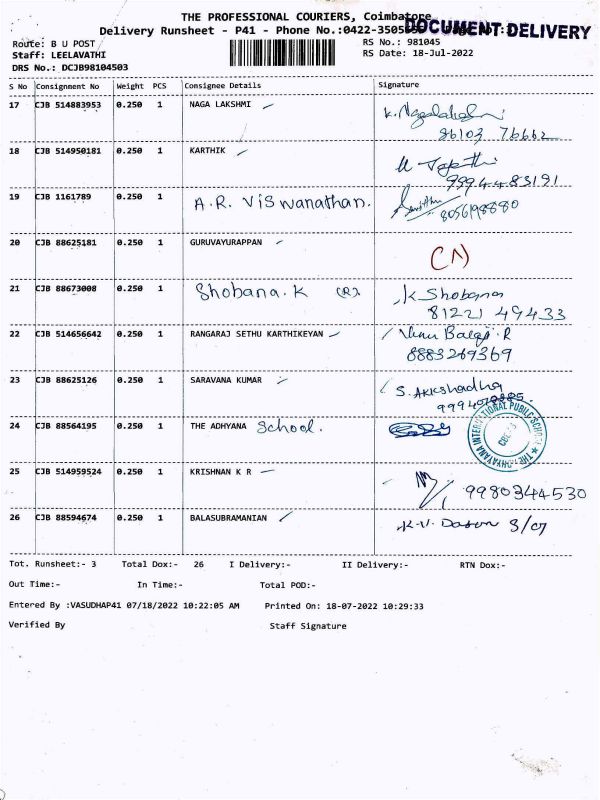 THE PROFESSIONAL COURIERS, Coimbatore
DOCUMENT DELIVERY
Delivery Runsheet - P41 - Phone No.:0422-3505
Route: B U POST
RS No.: 981045
Staff: LEELAVATHI
RS Date: 18-Jul-2022
DRS No.: DCJB98104503
S No Consignment No Weight PCS Consignee Details Signature
17 CJB 514883953 0.250 1 NAGA LAKSHMI
86103 76662
18 CJB 514950181 0.250 1 KARTHIK
99944 83191
19 CJB 1161789 0.250 1 A.R. Viswanathan.
8056198880
20 CJB 88625181 0.250 1 GURUVAYURAPPAN
21 CJB 88673008 0.250 1 Shobana.K (R) K Shobana
81221 49433
22 CJB 514656642 0.250 1 RANGARAJ SETHU KARTHIKEYAN Balaji.R
8883269369
23 CJB 88625126 0.250 1 SARAVANA KUMAR S. Akkshadha
24 CJB 88564195 0.250 1 THE ADHYANA School.
INTERNATIONAL PUBLIC SCHOOL
25 CJB 514959524 0.250 1 KRISHNAN K R 9980344530
26 CJB 88594674 0.250 1 BALASUBRAMANIAN K.V.
Tot. Runsheet:- 3 Total Dox:- 26 I Delivery:- II Delivery:- RTN Dox:-
Out Time:- In Time:- Total POD:-
Entered By :VASUDHAP41 07/18/2022 10:22:05 AM Printed On: 18-07-2022 10:29:33
Verified By Staff Signature